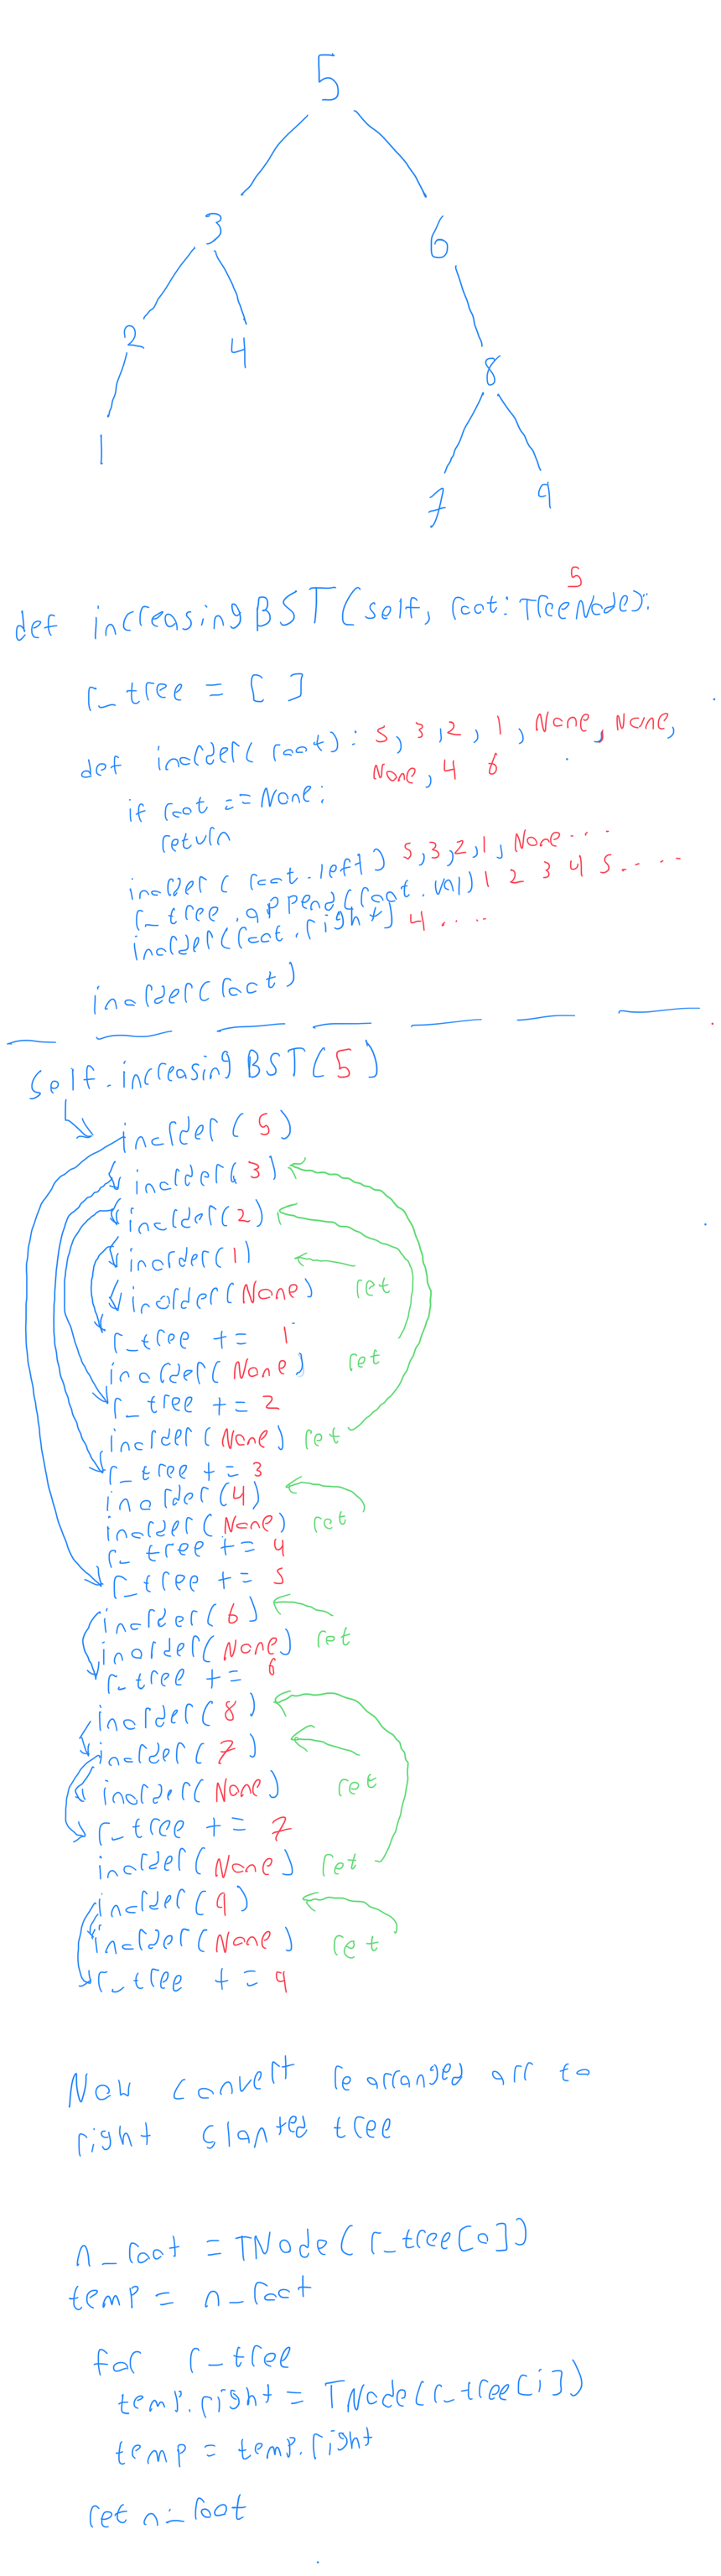 5
3 6
2 4 8
1 7 9
5
def increasingBST(self, root: TreeNode):
r_tree = [ ]
def inorder(root): 5, 3, 2, 1, None, None,
None, 4 6
if root == None:
return
inorder(root.left) 5,3,2,1, None...
r_tree.append(root.val) 1 2 3 4 5....
inorder(root.right) 4....
inorder(root)
self.increasingBST(5)
inorder(5)
inorder(3)
inorder(2)
inorder(1)
inorder(None) ret
r_tree += 1
inorder(None) ret
r_tree += 2
inorder(None) ret
r_tree += 3
inorder(4)
inorder(None) ret
r_tree += 4
r_tree += 5
inorder(6)
inorder(None) ret
r_tree += 6
inorder(8)
inorder(7)
inorder(None) ret
r_tree += 7
inorder(None) ret
inorder(9)
inorder(None) ret
r_tree += 9
Now convert rearranged arr to
right slanted tree
n_root = TNode(r_tree[0])
temp = n_root
for r_tree
temp.right = TNode(r_tree[i])
temp = temp.right
ret n_root